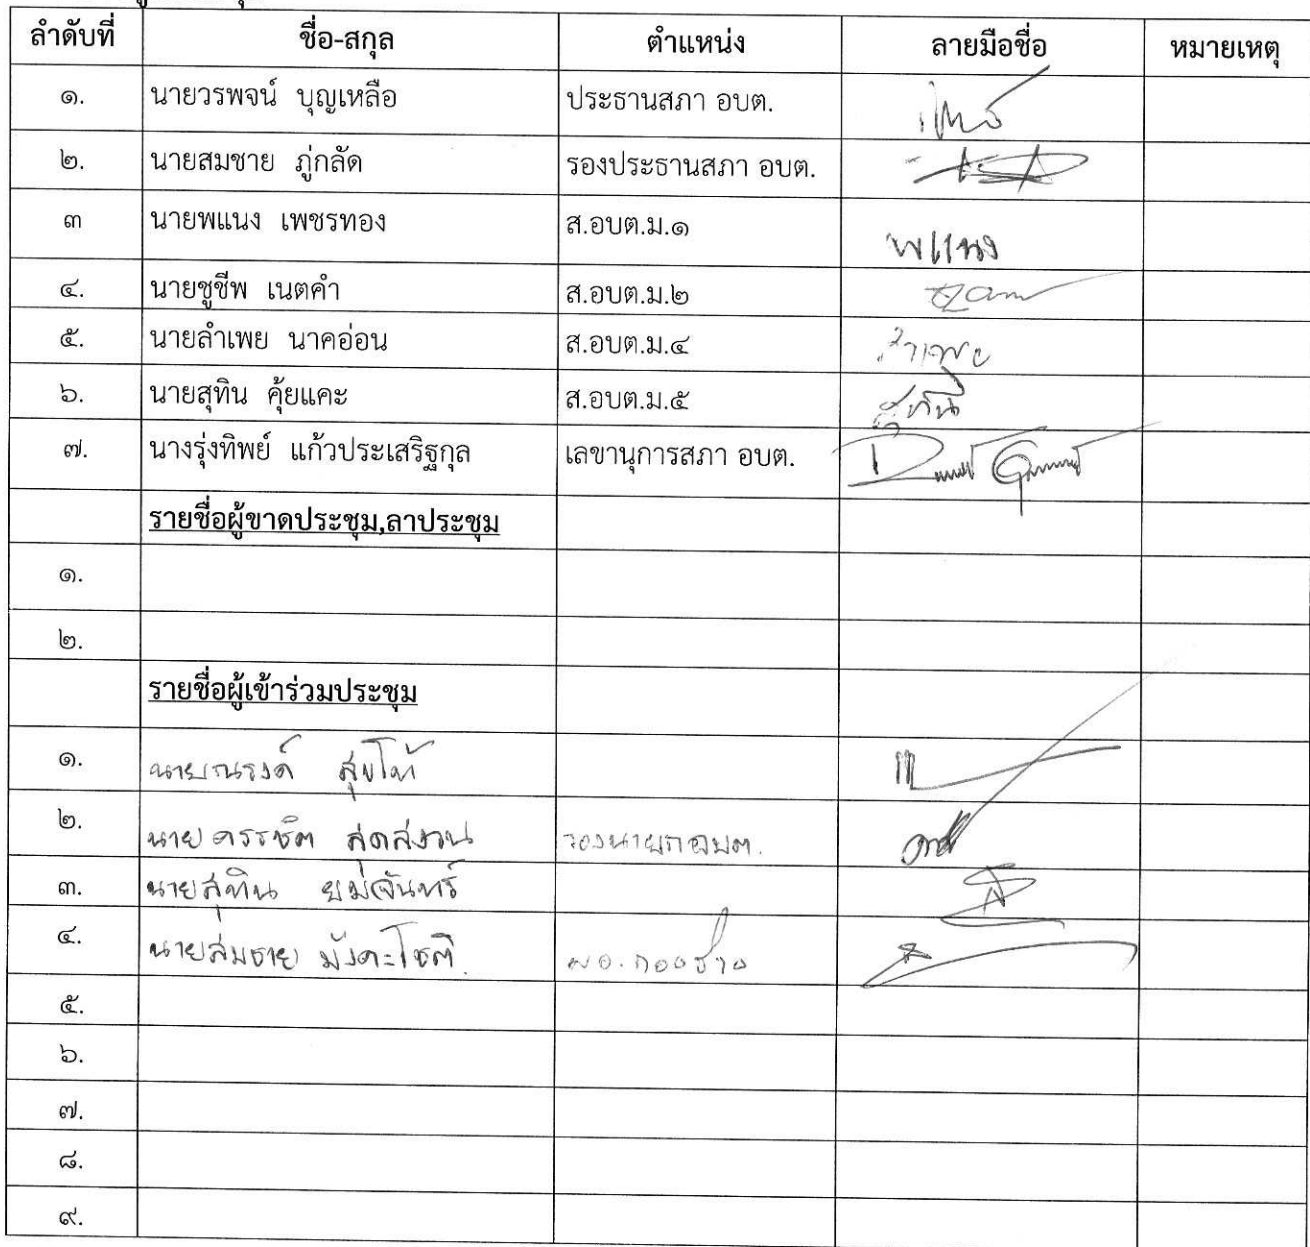 ลำดับที่ ชื่อ-สกุล ตำแหน่ง ลายมือชื่อ หมายเหตุ
๑. นายวรพจน์ บุญเหลือ ประธานสภา อบต.
๒. นายสมชาย ภู่กลัด รองประธานสภา อบต.
๓ นายพแนง เพชรทอง ส.อบต.ม.๑ พแนง
๔. นายชูชีพ เนตคำ ส.อบต.ม.๒
๕. นายลำเพย นาคอ่อน ส.อบต.ม.๔ ลำเพย
๖. นายสุทิน คุ้ยแคะ ส.อบต.ม.๕ สุทิน
๗. นางรุ่งทิพย์ แก้วประเสริฐกุล เลขานุการสภา อบต.
รายชื่อผู้ขาดประชุม,ลาประชุม
๑.
๒.
รายชื่อผู้เข้าร่วมประชุม
๑. นายณรงค์ สุขโท้
๒. นาย สุดสงวน รองนายกอบต.
๓. นายสุทิน ยมจันทร์
๔. นายสมชาย มังคะโชติ ผอ.กองช่าง
๕.
๖.
๗.
๘.
๙.